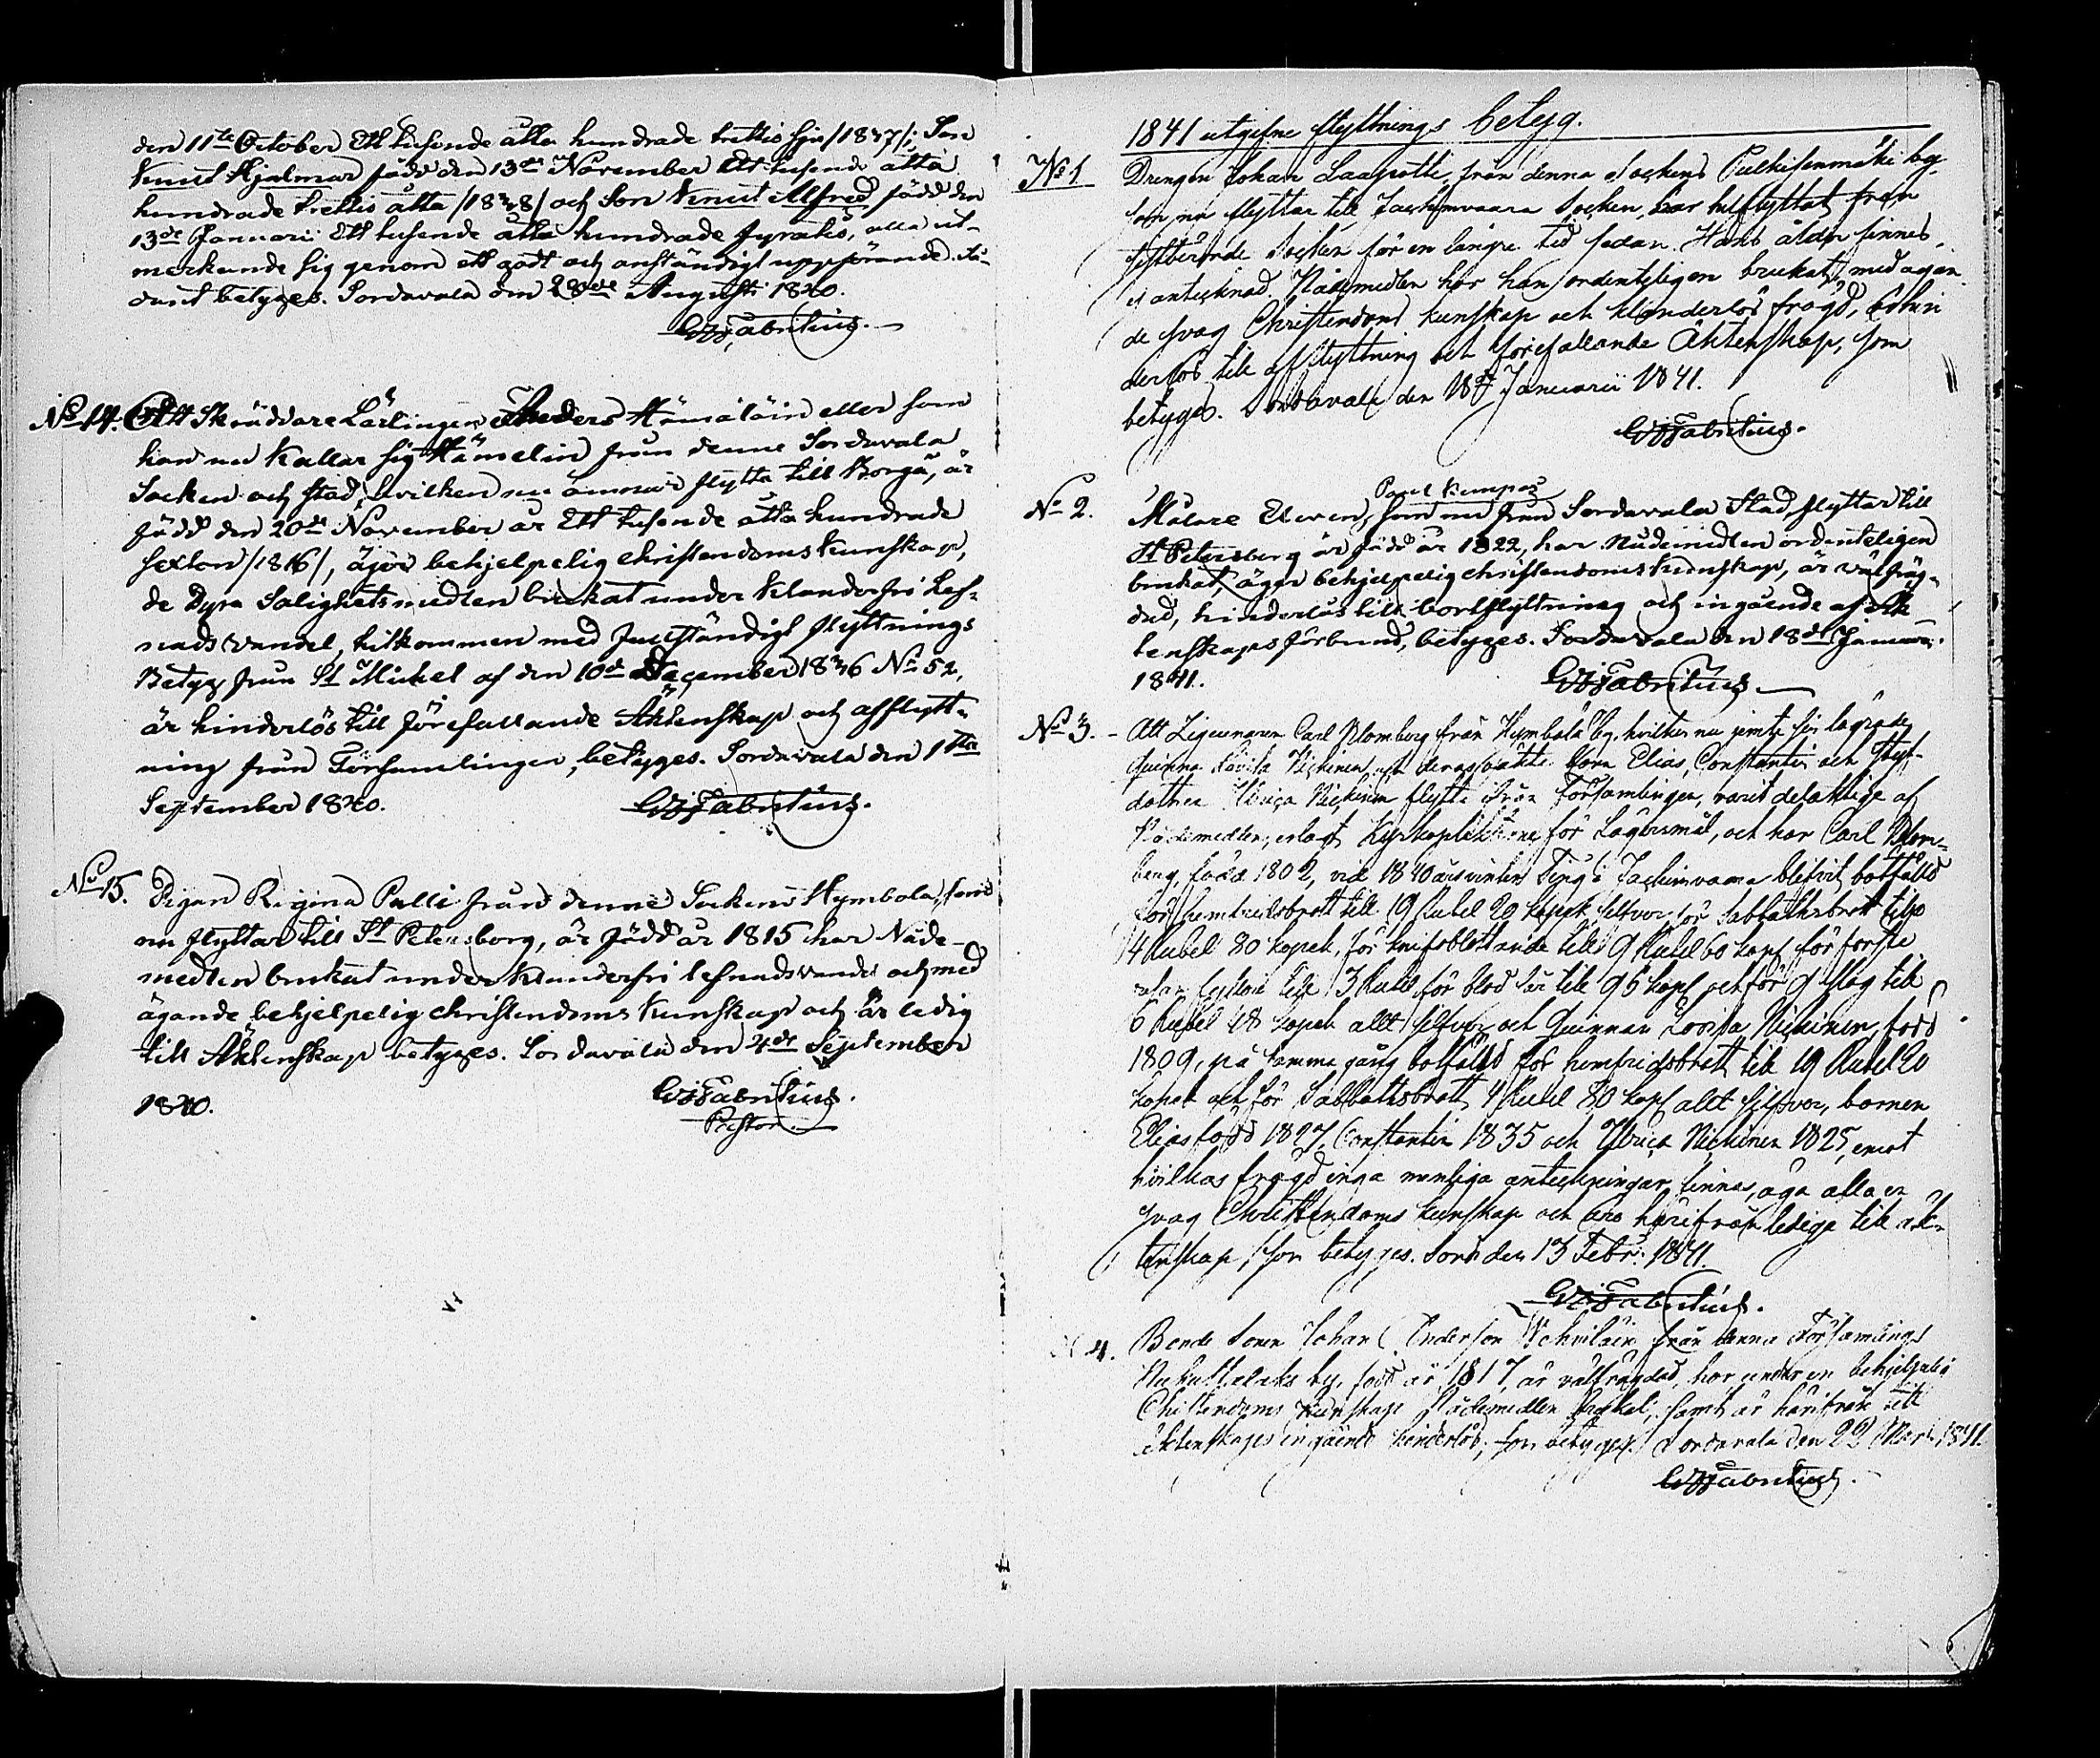 den 11te October Ett tusende åtta hundrade trettio sju /1837/; Son
Knut Hjalmar född den 13de November Ett tusende åtta
hundrade trettio åtta /1838/ och Son Knut Alfred född den
13de Januarii Ett tusende åtta hundrade fyratio, alla ut-
märkande sig genom ett godt och anständigt uppförande. Så-
dant betyges. Sordavala den 28de Augusti 1840.
Fabritius.
No 14. Att Skräddare Lärlingen Anders Hämäläin eller som
han nu kallar sig Hämelin från denne Sordavala
Socken och stad, hvilken nu ämnar flytta till Borgå, är
född den 20de November år Ett tusende åtta hundrade
sexton /1816/, äger behjelpelig christendoms kunskap,
de Dyra Salighetsmedlen brukat under klanderfri lef-
nads vandel, tilkommen med fullständigt flyttnings
Betyg från St Michel af den 10de December 1836 No 52,
är hinderlös till förefallande Äktenskap och afflytt-
ning från Församlingen, betyges. Sordavala den 1sta
September 1840.
Fabritius.
No 15. Pigan Regina Pulli från denne Sockens Hymbola, som
nu flyttar till St Petersborg, är född år 1815 har Nåde-
medlen brukat under klanderfri lefnadsvandel och med
ägande behjelpelig christendoms kunskap och är ledig
till Äktenskap betyges. Sordavala den 4de September
1840.
Fabritius.
Pastor.
1841 utgifne flyttnings betyg.
No 1 Drengen Johan Laapotti, från denna Sockens Pulkisenmäki by,
som nu flyttar till Jackimvaara Socken, har tilflyttat från
sistberörde Socken för en längre tid sedan. Hans ålder finnes
ej antecknad. Nådemedlen har han ordenteligen brukat, med ägan-
de svag Christendoms kunskap och klanderlös frägd, är hin-
derlös till afflyttning och förefallande Äktenskap, som
betyges. Sordavala den 18de Januarii 1841.
Fabritius.
Paul
No 2. Målare Eleven, som nu från Sordavala Stad flyttar till
St Petersborg är född år 1822, har Nådemedlen ordenteligen
brukat, äger behjelpelig christendoms kunskap, är välfräg-
dad, hinderlös till bortflyttning och ingående af Äk-
tenskaps förbund, betyges. Sordavala den 18de Januarii
1841.
Fabritius
No 3. Att Zigeunaren Carl Blomberg från Hymbola by, hvilken nu jemte sin lägrade
quinna Lovisa Nickinen och deras oäkta barn Elias, Constantin och Styf-
dottren Ulrica Nickinen flytta från Församlingen, varit delaktige af
Nådemedlen, erlagt för Lägersmål, och har Carl Blom-
berg, född 1802, vid 1840 års vinter Ting i Jackimvaara blifvit botfälld
för hemfridsbrott till 19 Rubel 20 kopek silfver, för Sabbathsbrott till
4 Rubel 80 kopek, för knifsblottande till 9 Rubel 60 kop, för förste
till 3 Rubel, för blodsår till 96 kop, och för 9 slag till
6 Rubel 48 kopek allt silfver och Quinnan Lovisa Nickinen, född
1809, på samma gång botfälld för hemfridsbrott till 19 Rubel 20
kopek och för Sabbathsbrott 4 Rubel 80 kop allt silfver, barnen
Elias född 1827, Constantin 1835 och Ulrica Nickinen 1825, emot
hvilkas frägd inga menliga anteckningar finnas, äga alla en
svag Christendoms kunskap och äro härifrån lediga till äk-
tenskap, som betyges. Sord. den 13 Febr. 1841.
Fabritius.
4. Bonde Sonen Johan Anderson från denna Församlings
by, född år 1817, är välfrägdad, har under en behjelpelig
Christendoms kunskap Nådemedlen brukat, samt är härifrån till
äktenskaps ingående hinderlös, som betyges. Sordavala den 22 Mart. 1841.
Fabritius.